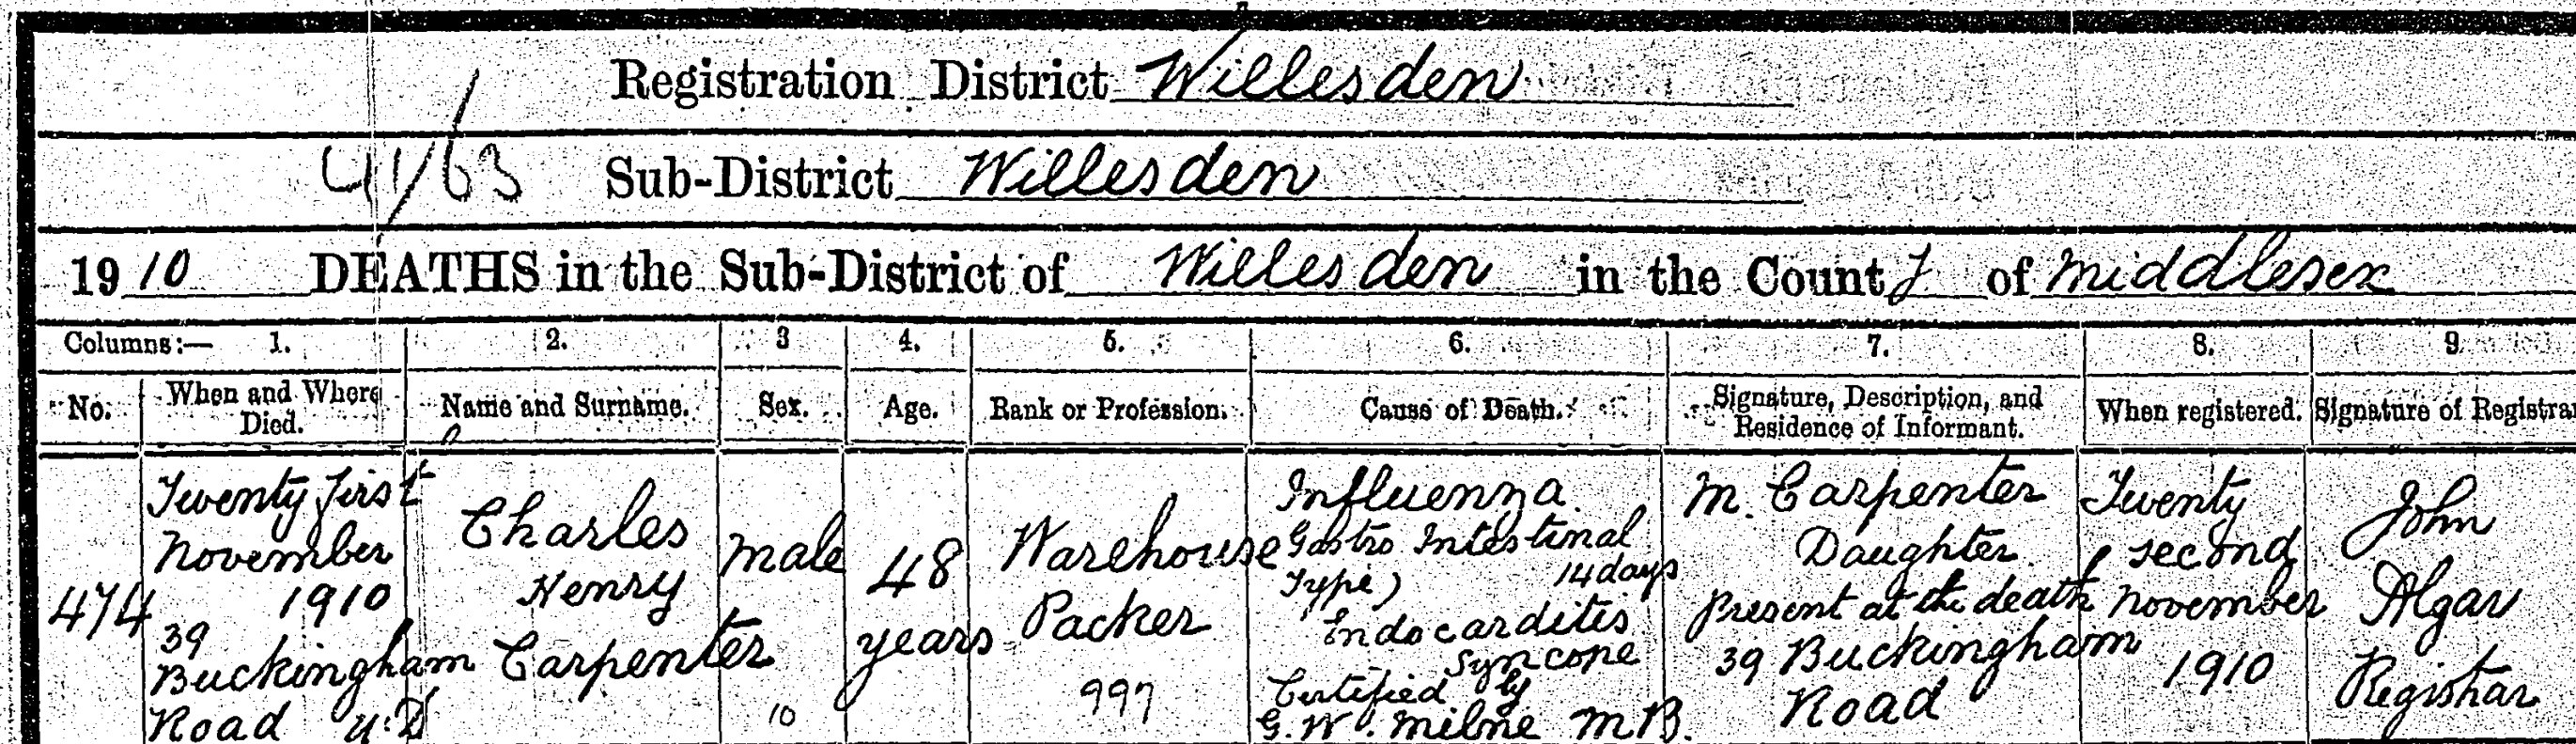 Registration District Willesden
41/63 Sub-District Willesden
1910 DEATHS in the Sub-District of Willesden in the County of Middlesex
Columns:— 1. 2. 3 4. 5. 6. 7. 8. 9
No. When and Where Died. Name and Surname. Sex. Age. Rank or Profession. Cause of Death. Signature, Description, and Residence of Informant. When registered. Signature of Registrar
474
Twenty first
November
1910
39
Buckingham
Road U.D
Charles
Henry
Carpenter
Male
10
48
years
Warehouse
Packer
997
Influenza
Gastro Intestinal
Type) 14 days
Endocarditis
Syncope
Certified by
G. W. Milne M.B.
M. Carpenter
Daughter
Present at the death
39 Buckingham
Road
Twenty
second
November
1910
John
Algar
Registrar